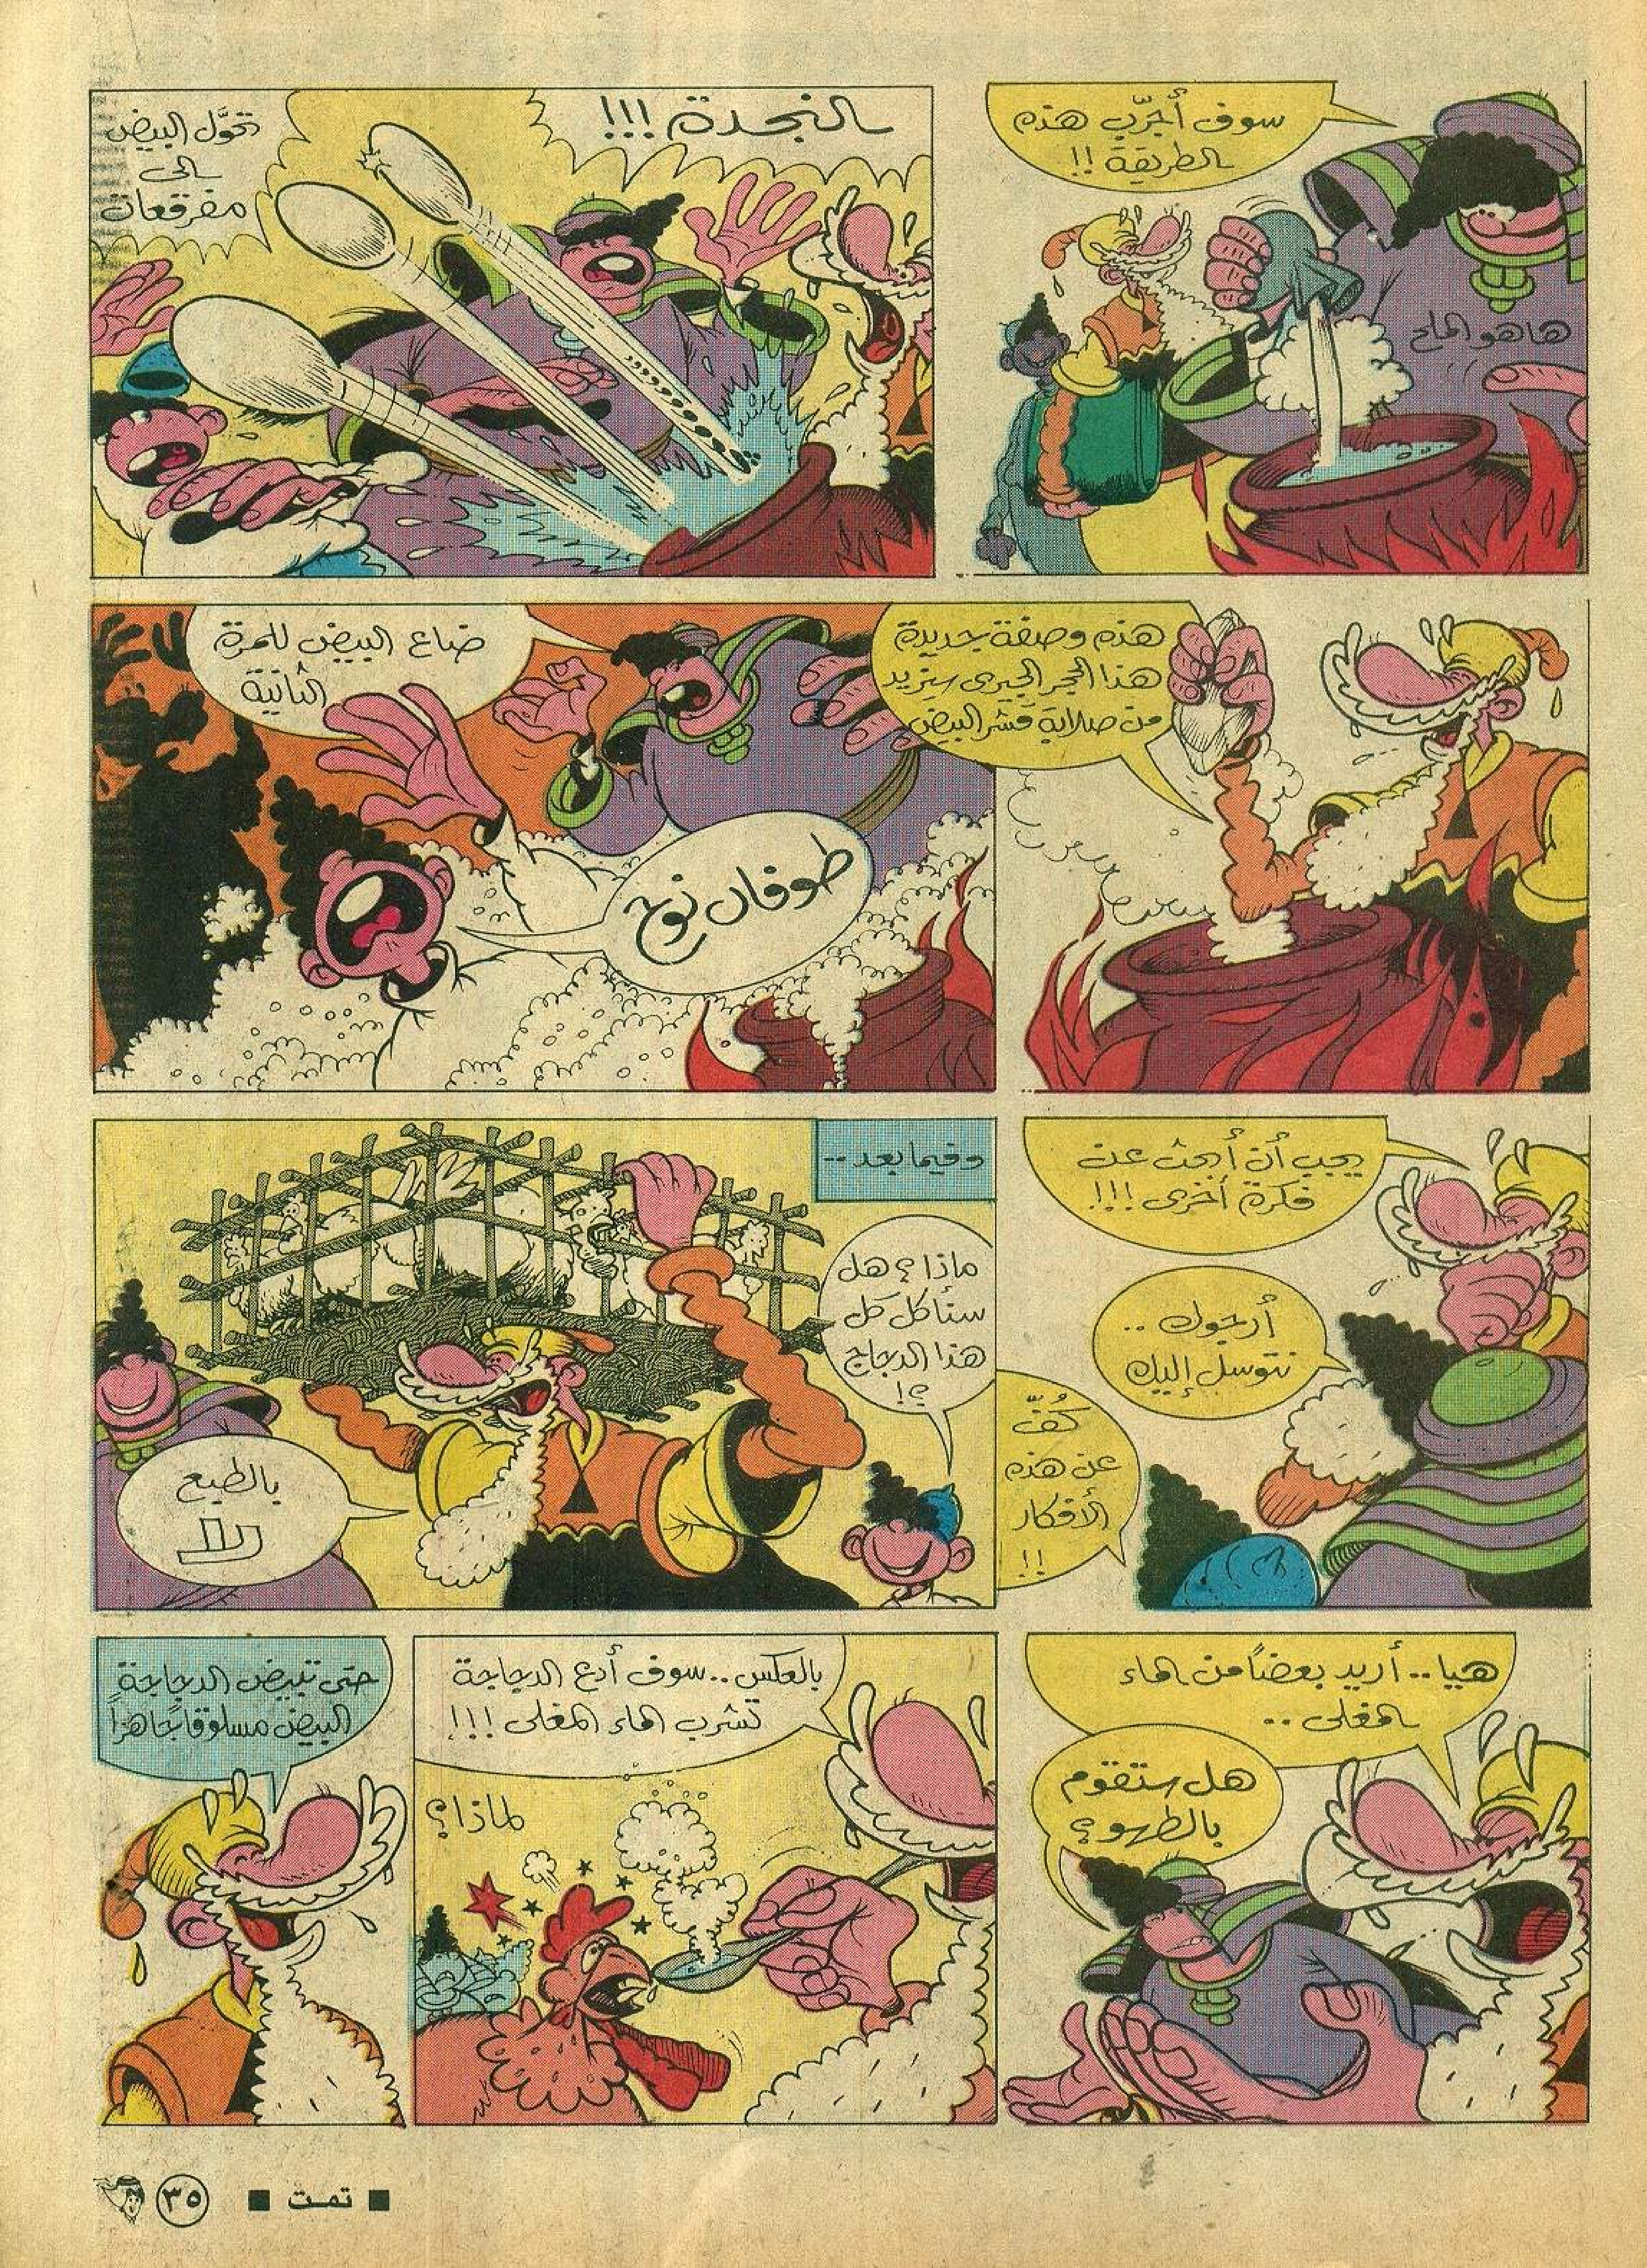 سوف أجرّب هذه
الطريقة !!
هاهو الملح
النجدة !!!
تحوَّل البيض
الى
مفرقعات
هذه وصفة جديدة
هذا الحجر الجيرى سيزيد
من صلابة قشر البيض
ضاع البيض للمرة
الثانية
طوفان نوح
يجب أن أبحث عن
فكرة أخرى !!!
أرجوك ..
نتوسل إليك
كُفّ
عن هذه
الأفكار
!!
وفيما بعد ..
ماذا ؟ هل
ستأكل كل
هذا الدجاج
؟!
بالطبع
لا
هيا .. أريد بعضاً من الماء
المغلى ..
هل ستقوم
بالطهو ؟
بالعكس .. سوف أدع الدجاجة
تشرب الماء المغلى !!!
لماذا ؟
حتى تبيض الدجاجة
البيض مسلوقا جاهزاً
■ تمت ■
٣٥